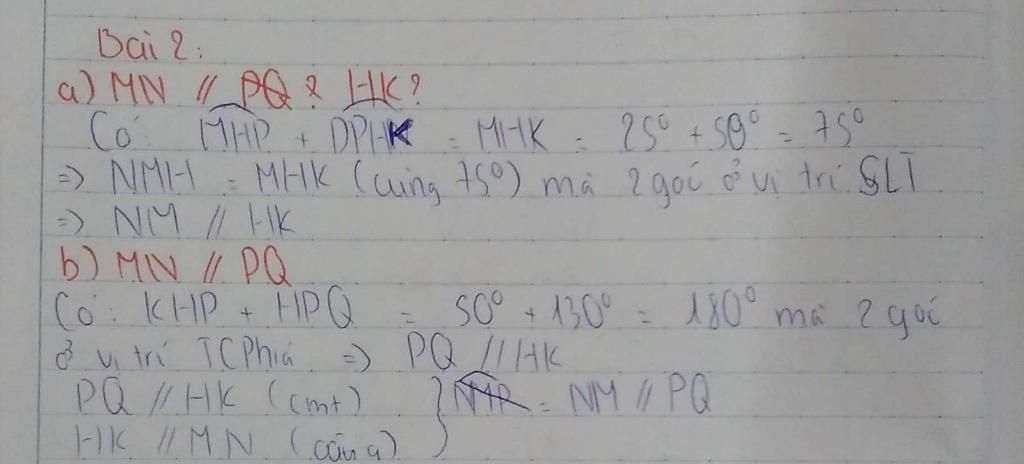 Bài 2:
a) MN // PQ ? HK?
Có: MHP + PHK = MHK = 25° + 50° = 75°
=> NMH = MHK (cùng 75°) mà 2 góc ở vị trí SLT
=> NM // HK
b) MN // PQ
Có: KHP + HPQ = 50° + 130° = 180° mà 2 góc
ở vị trí TCPhía => PQ // HK
PQ // HK (cmt) } = NM // PQ
HK // MN (câu a)